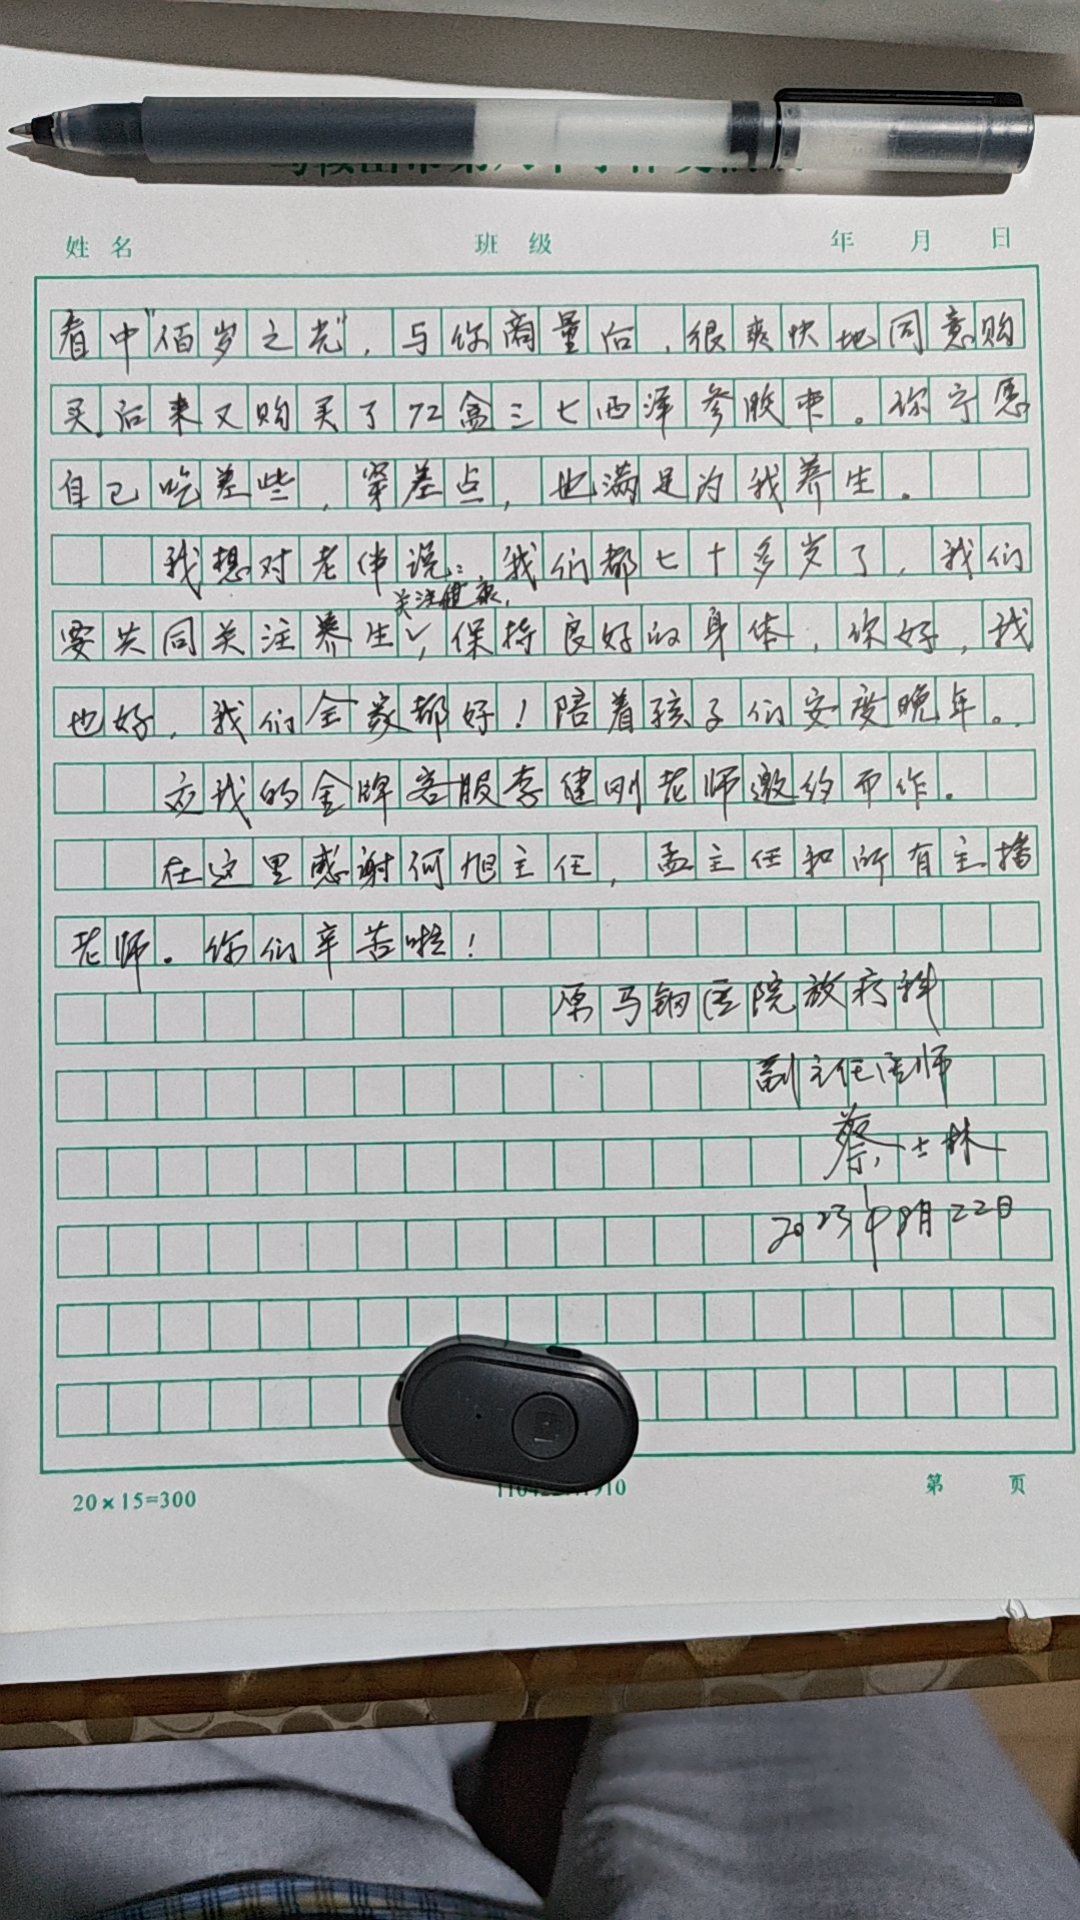 姓名 班级 年 月 日
看中"佰岁之光"，与你商量后，很爽快地同意购
买。后来又购买了72盒三七西洋参胶束。你宁愿
自己吃差些，穿差点，也满足为我养生。
我想对老伴说：我们都七十多岁了，我们
关注健康，
要共同关注养生，保持良好的身体，你好，我
也好，我们全家都好！陪着孩子们安度晚年。
应我的金牌客服李健刚老师邀约而作。
在这里感谢何旭主任，孟主任和所有主播
老师。你们辛苦啦！
原马钢医院放疗科
副主任医师
蔡士林
2023年8月22日
20×15=300 第 页